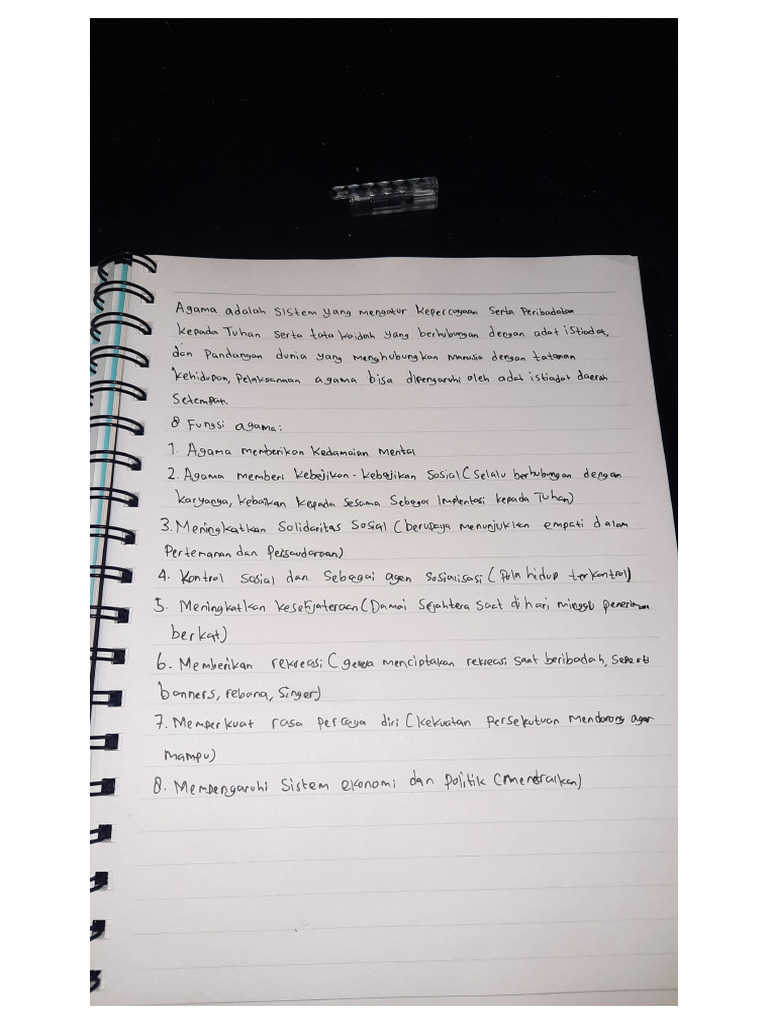 Agama adalah sistem yang mengatur kepercayaan serta Peribadatan
kepada Tuhan serta tata kaidah yang berhubungan dengan adat istiadat,
dan Pandangan dunia yang menghubungkan Manusia dengan tatanan
kehidupan, Pelaksanaan agama bisa dipengaruhi oleh adat istiadat daerah
Setempat.
8 Fungsi agama:
1. Agama memberikan Kedamaian Mental
2. Agama memberi kebajikan-kebajikan Sosial (Selalu berhubungan dengan
karyanya, kebaikan kepada sesama Sebagai Implentasi kepada Tuhan)
3. Meningkatkan Solidaritas Sosial (berupaya menunjukkan empati dalam
Pertemanan dan Persaudaraan)
4. Kontrol Sosial dan Sebagai agen Sosialisasi (Pola hidup terkontrol)
5. Meningkatkan kesejateraan (Damai Sejahtera Saat di hari minggu penerimaan
berkat)
6. Memberikan rekreasi (gereja menciptakan rekreasi saat beribadah, seperti
banners, rebana, Singer)
7. Memperkuat rasa percaya diri (kekuatan persekutuan Mendorong agar
Mampu)
8. Mempengaruhi Sistem ekonomi dan Politik (Menetralkan)